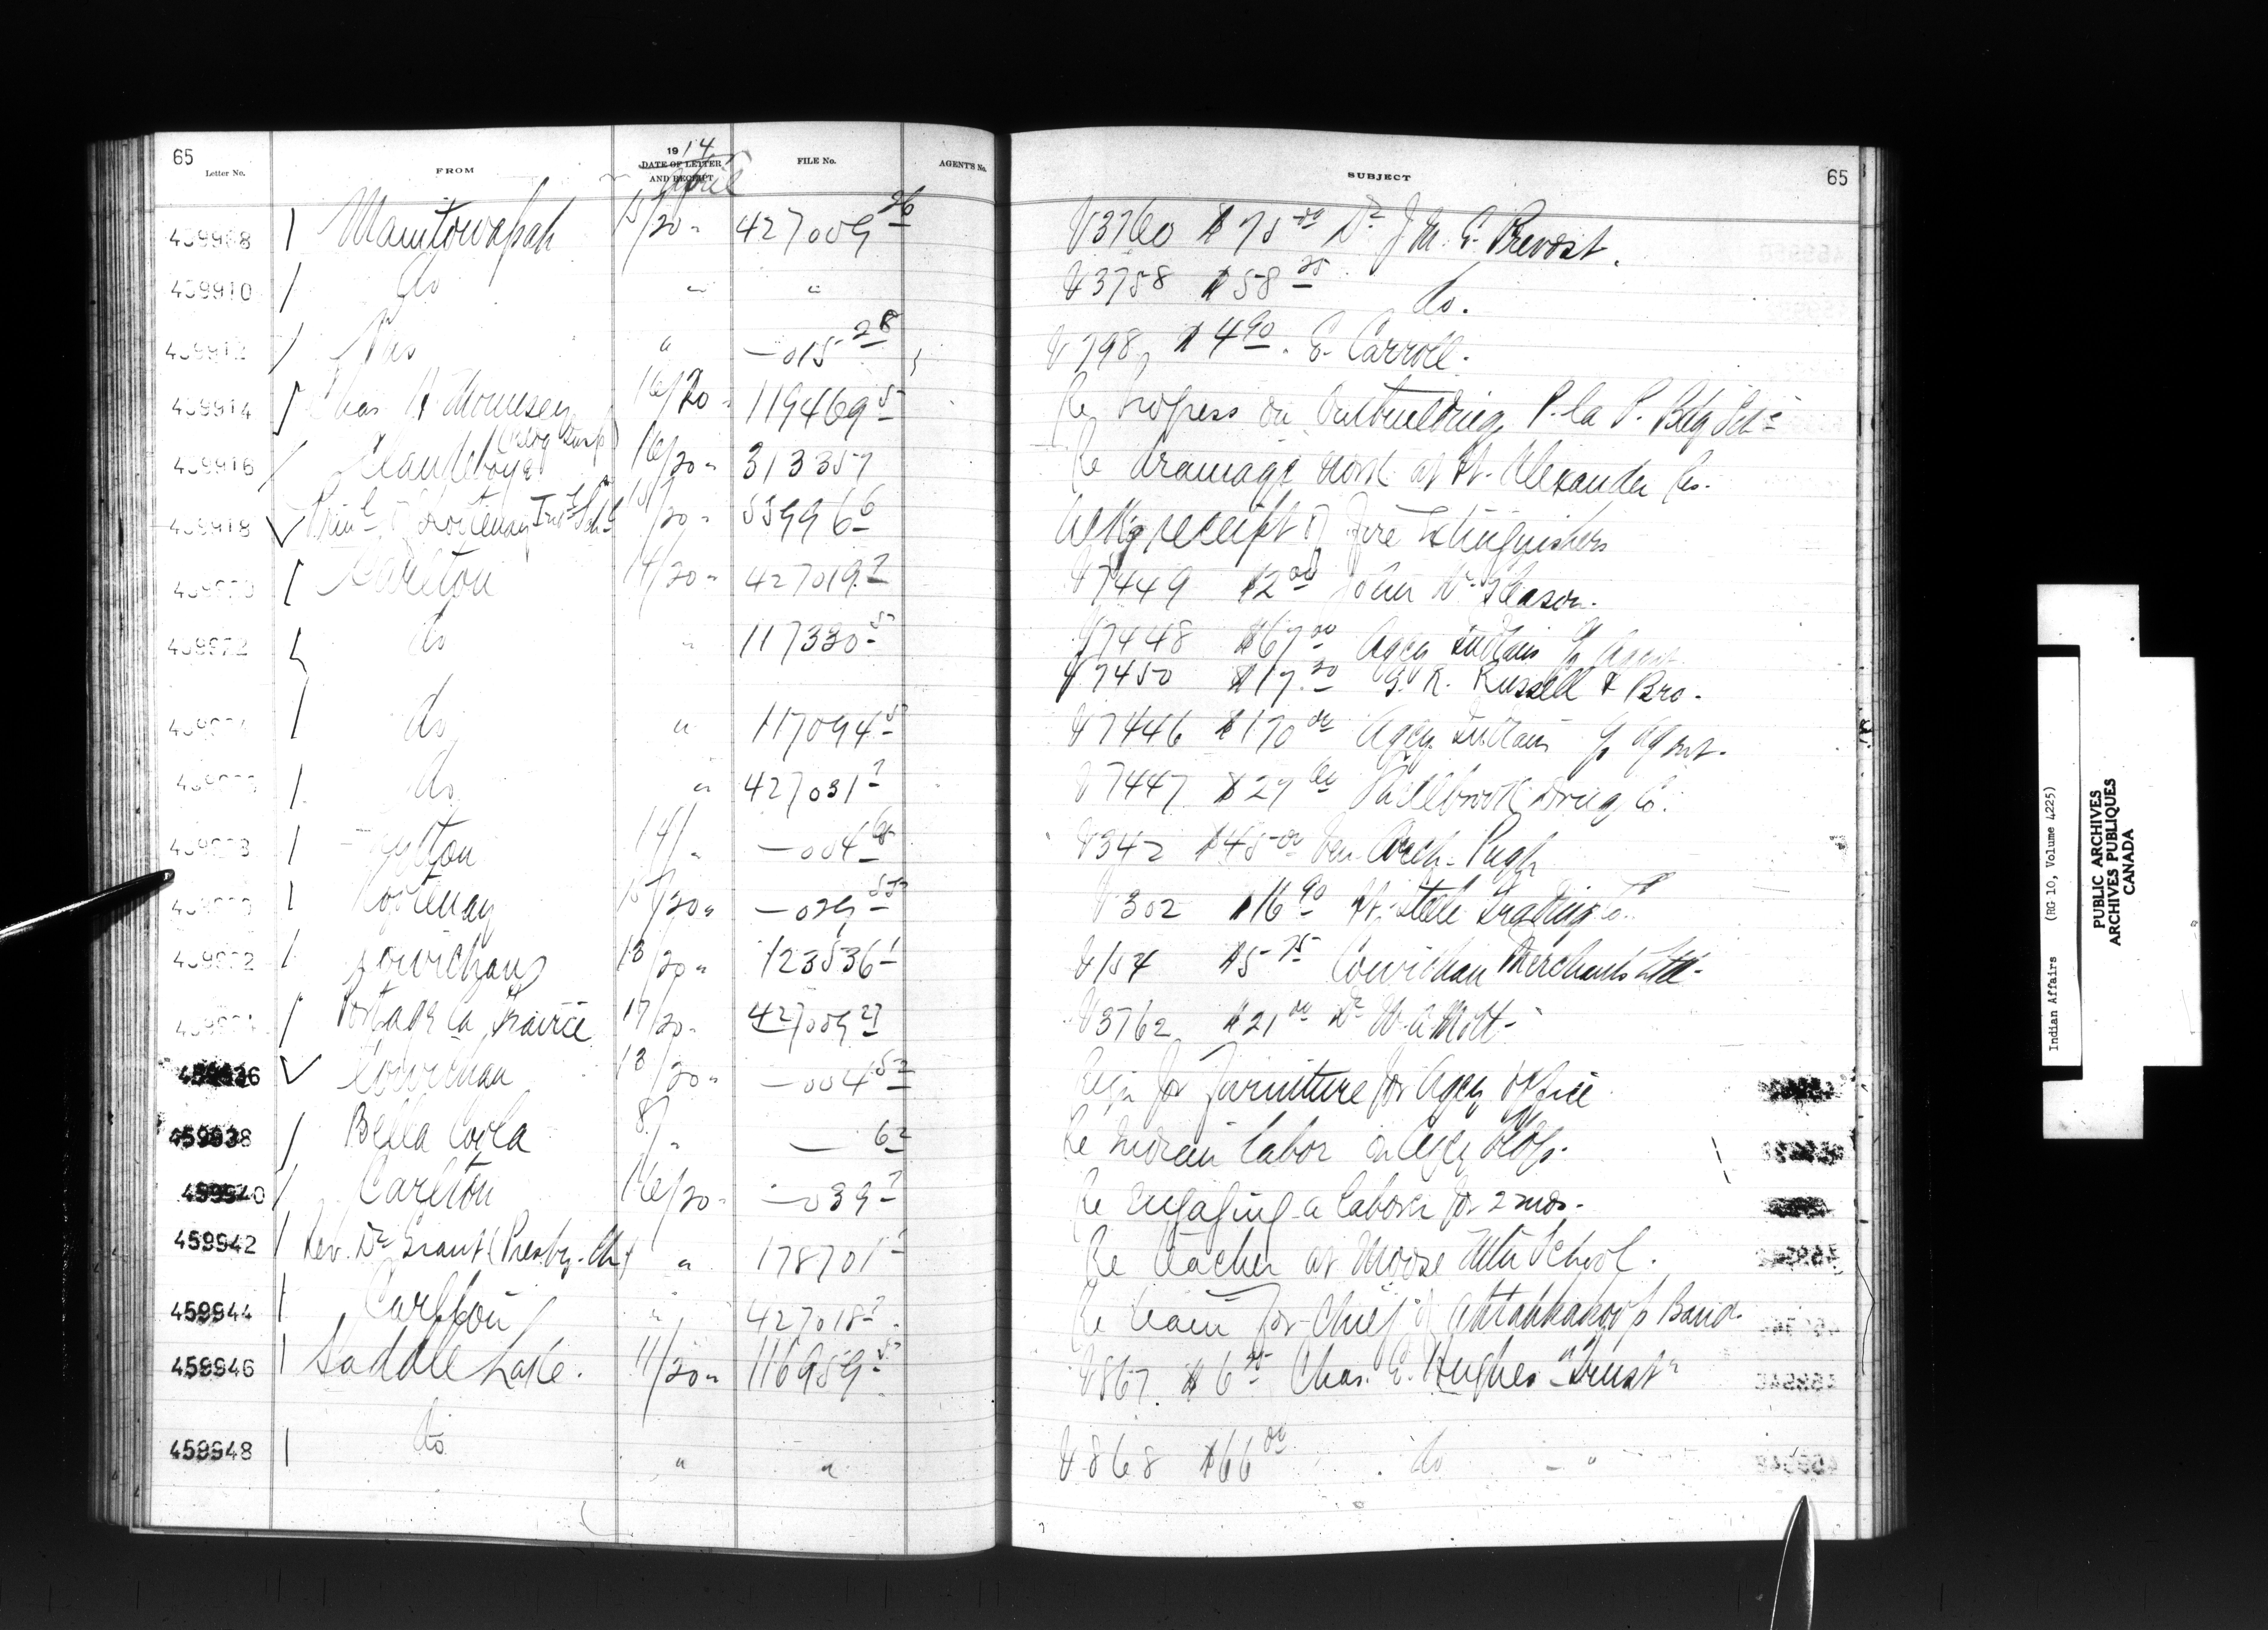 65
Letter No. FROM 1914 DATE OF LETTER AND RECEIPT April FILE No. AGENT'S No. SUBJECT 65
459908 Manitowapah 15/20 " 427009 26 V3760 $75 00 Dr J. M. E. Prevost.
459910 do " " V3758 $58 25 do.
459912 Pas " — 015 28 V798, $4 90. E. Carroll.
459914 Chas H. 16/20 " 119469 5 Re Progress on Outbuilding, P. la P. Bdg Sch
(Bldg Insp)
459916 Clandeboye 16/20 " 313357 Re drainage work at Ft. Alexander Res.
459918 Prinl of Kootenay Indl Schl 15/20 " 6 Ackg receipt of fire Extinguishers
Carlton 14/20 " 427019 2 V7449 $2 00 John Gleason.
459922 do " 117330 5 V7448 $67 00 Agcy Indians p Agent
V7450 $17.50 G. R. Russell & Bro.
do " 117094 5 V7446 $170 00 Agcy Indians p Agent.
do " 427031 2 V7447 $29 Shellbrook Drug Co.
Lytton 14/ " — 004 V342 $45 00 Ven. Arch. Pugh
Kootenay 15/20 " — 029 55 V302 $16 90 Ft. Steele Trading Co.
459932 Cowichan 13/20 " 123536 1 V154 $5 75 Cowichan Merchants Ltd.
Portage la Prairie 17/20 " 427009 27 V3762 $21 00 Dr W. A. Mott.
459936 Cowichan 13/20 " — 004 52 for furniture for Agcy office
459938 Bella Coola 8/ " — 62 Re Indian labor on Agcy
459940 Carlton 16/20 " — 039 2 Re engaging a laborer for 2 mos.
459942 Rev. Dr Grant (Presby. Ch) " 178701 2 Re teacher at Moose Mtn School.
459944 Carlton " 427018 2 Re team for Chief of Ahtahkakoop's Band.
459946 Saddle Lake. 11/20 " 116959 5 V867. $6 25 Chas. E. Hughes "Trust"
459948 do " " V868 $66 00 do — "
Indian Affairs (RG 10, Volume 4225)
PUBLIC ARCHIVES
ARCHIVES PUBLIQUES
CANADA